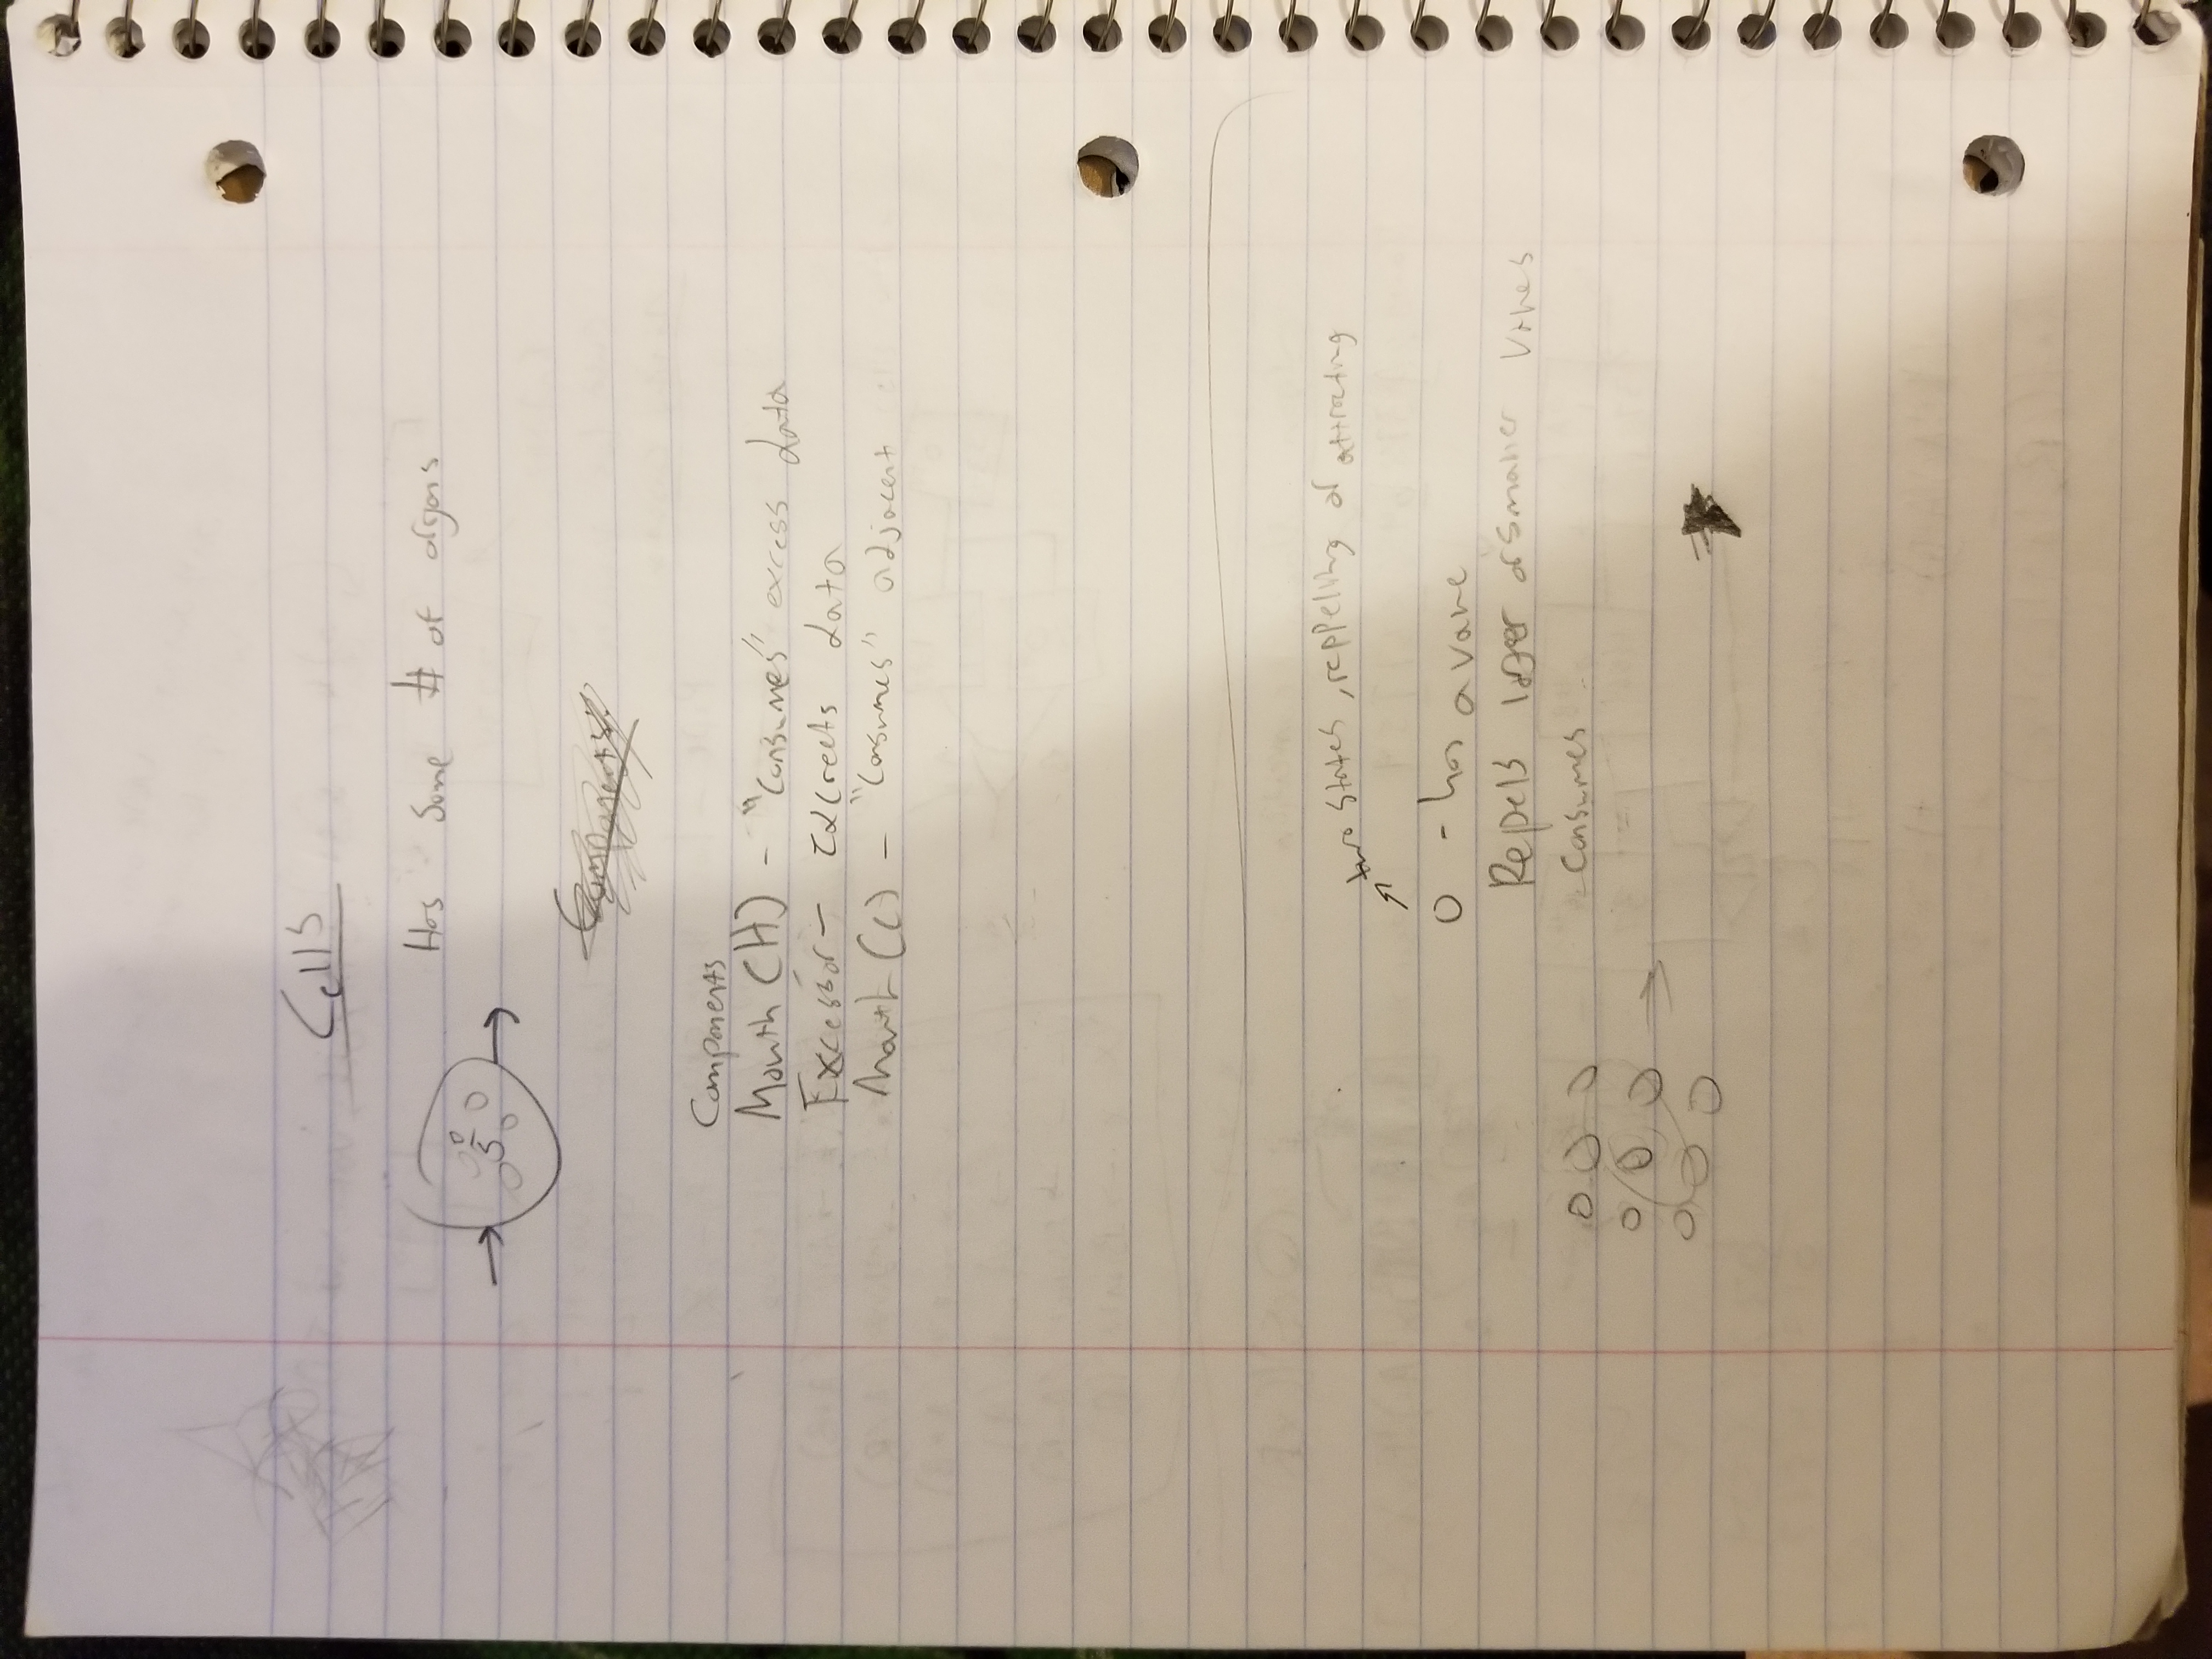 Cells
Has some # of organs
Components:
Components
Mouth (H) - "Consumes" excess data
Excessor - Excreets data
Mouth (C) - "Consumes" adjacent
two states, reppelling or attracting
O - has a value
Repels larger or smaller values
Consumes